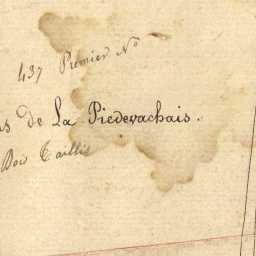 437 Premier No
s de La Piedevachais.
Bois Taillis